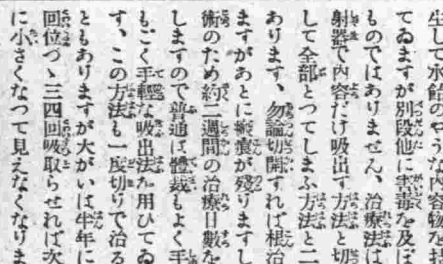 生して水飴のやうな内容物を
てゐますが別段他に害毒を及ぼ
ものではありません、治療法は
射器で内容だけ吸出す方法と切
して全部とつてしまふ方法と二
あります、勿論切開すれば根治
ますがあとに瘢痕が残りますし
術のため約二週間の治療日數を
しますので普通は體裁もよく手
もごく手輕な吸出法を用ひてゐ
す、この方法も一度切りで治る
ともありますが大がいは半年に
回位づゝ三四回吸取らせれば次
に小さくなつて見えなくなりま